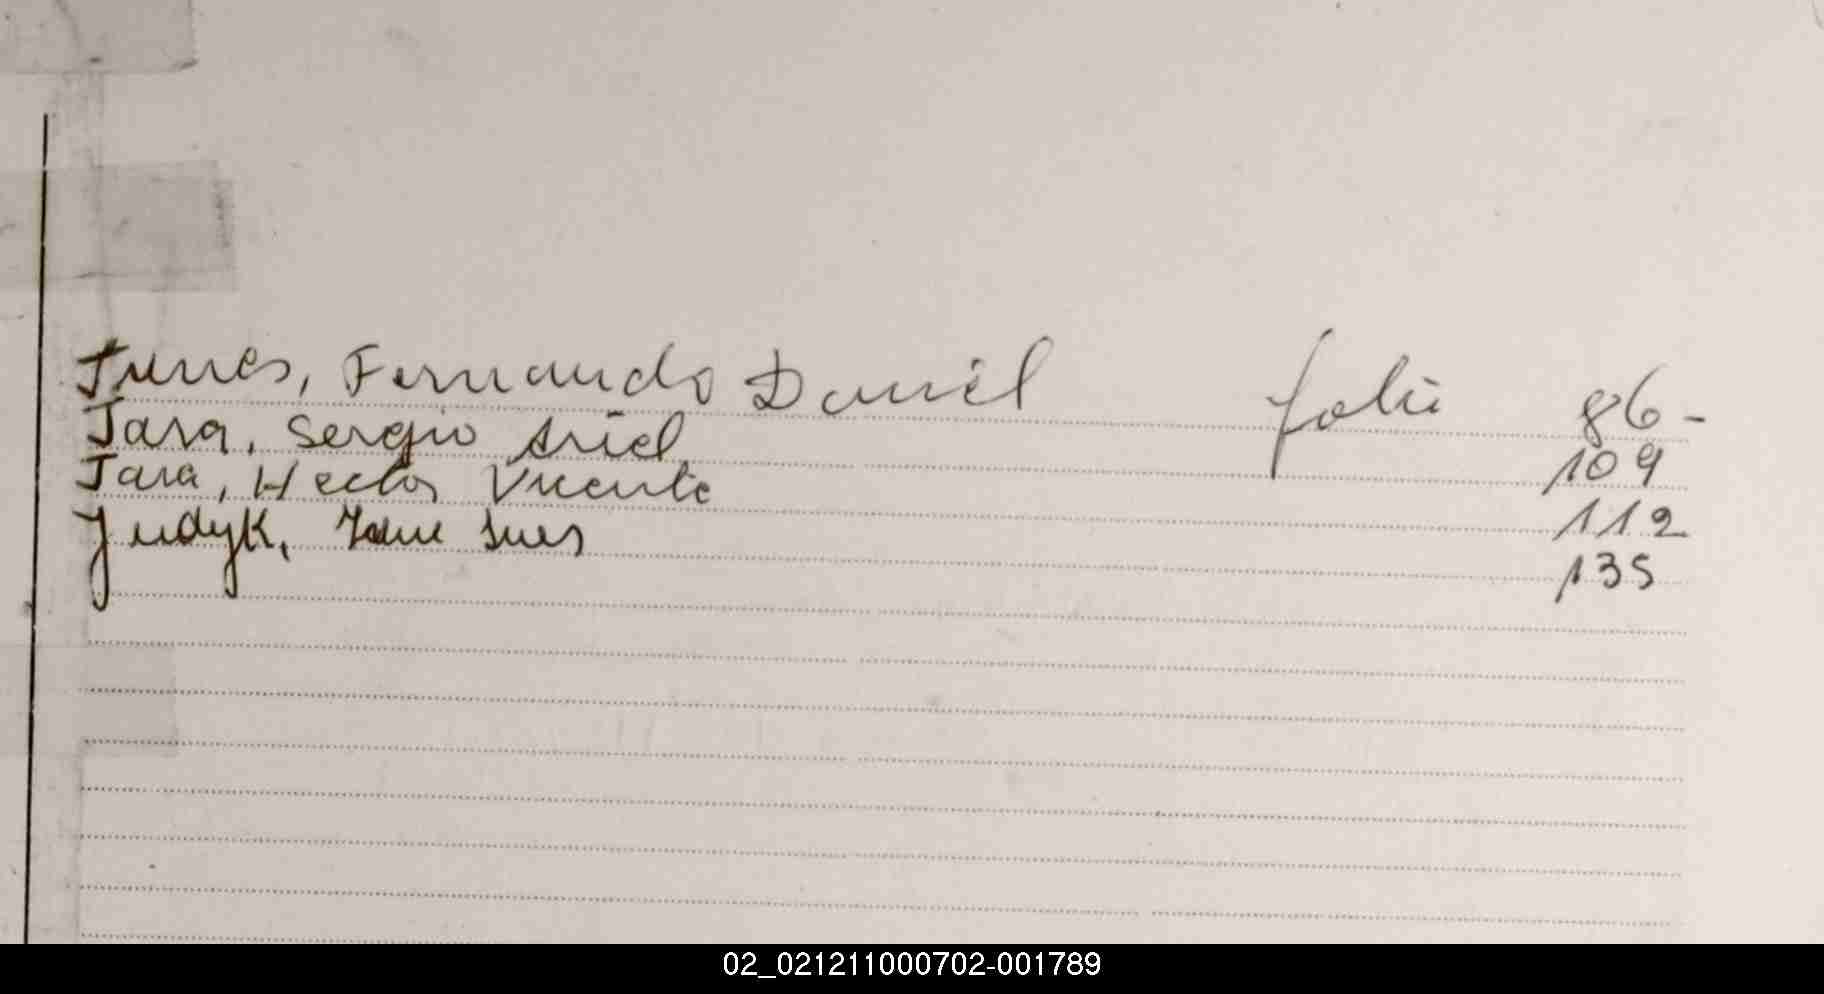 Junes, Fernando Daniel folio 86-
Jara, Sergio Ariel 109
Jara, Hector Vicente 112
Judyk, Ines 135
02_021211000702-001789